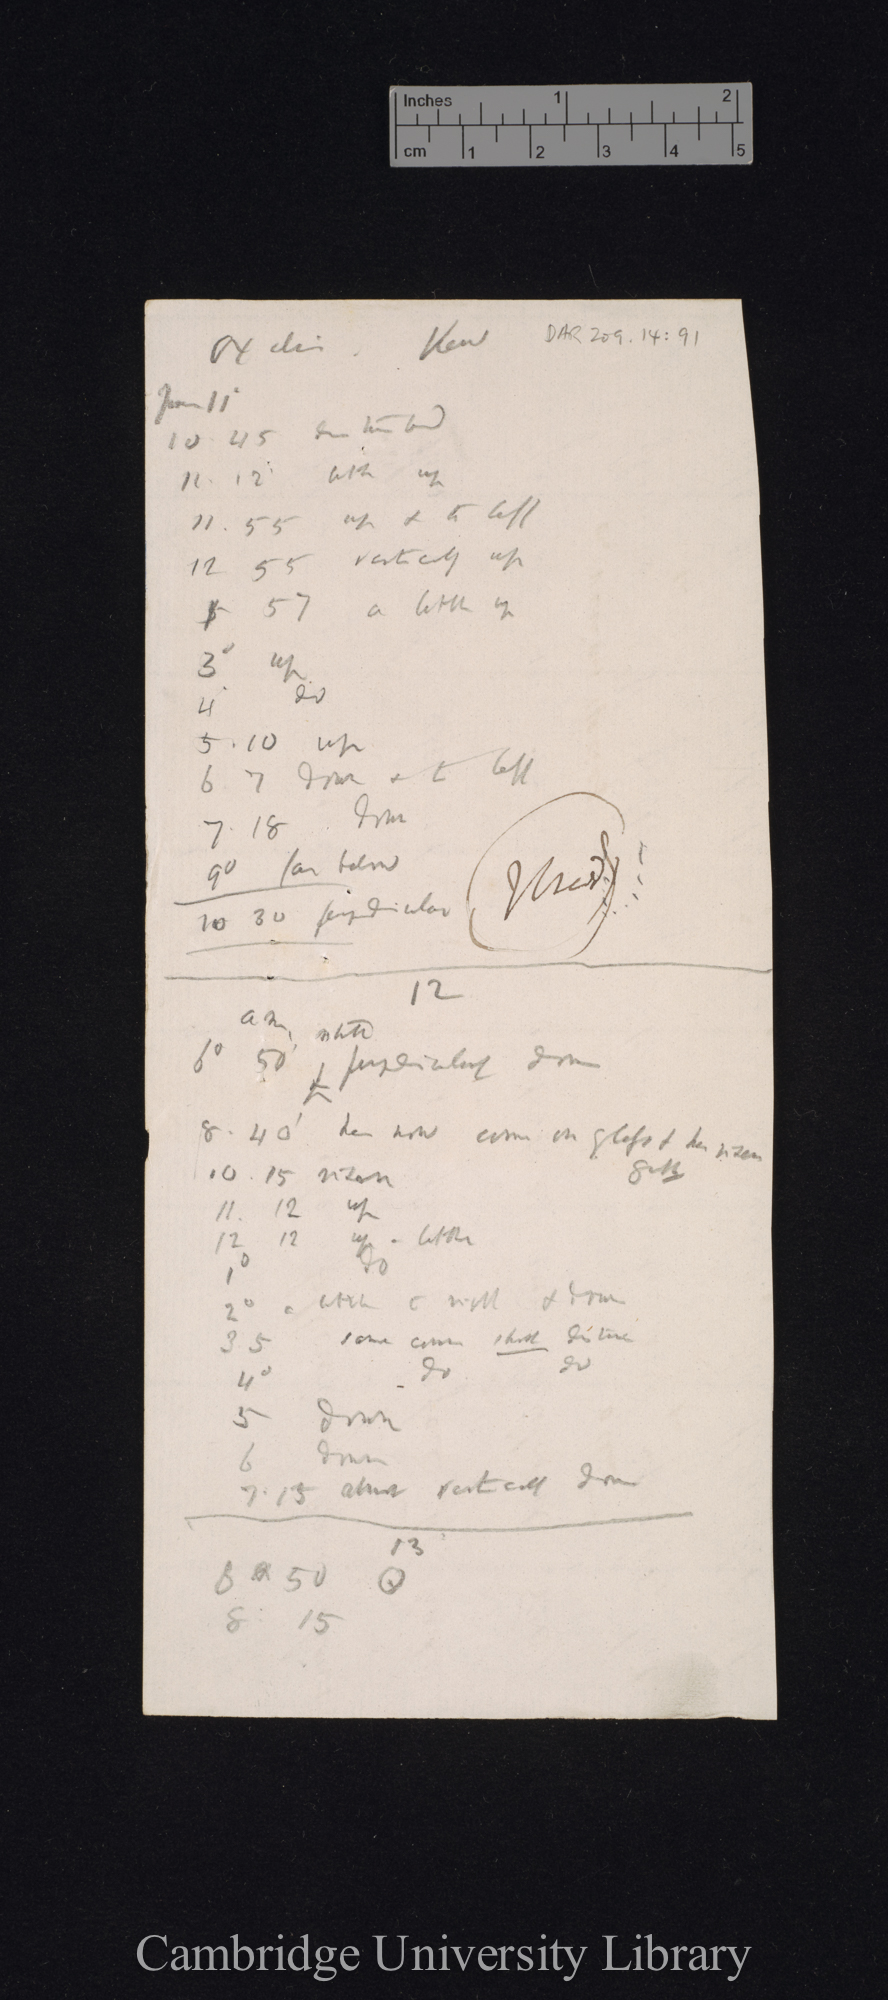 Inches 1 2
cm 1 2 3 4 5
Oxalis. Kew DAR 209.14:91
June 11
10 45
11. 12 little up
11. 55 up & to left
12 55 vertically up
57 a little up
3° up
4 do
5.10 up
6 7 down & to left
7.18 down
9° far below
10 30 perpendicular
Used
12
a m,
6° 50' perpendicularly down
8.40' has now come on glass & has risen
10.15 risen
11. 12 up
12 12 up a little
1° do
2° a little to right & down
3 5 same course short distance
4° do do
5 down
6 down
7.15 almost vertically down
13
6 50
8 15
Cambridge University Library